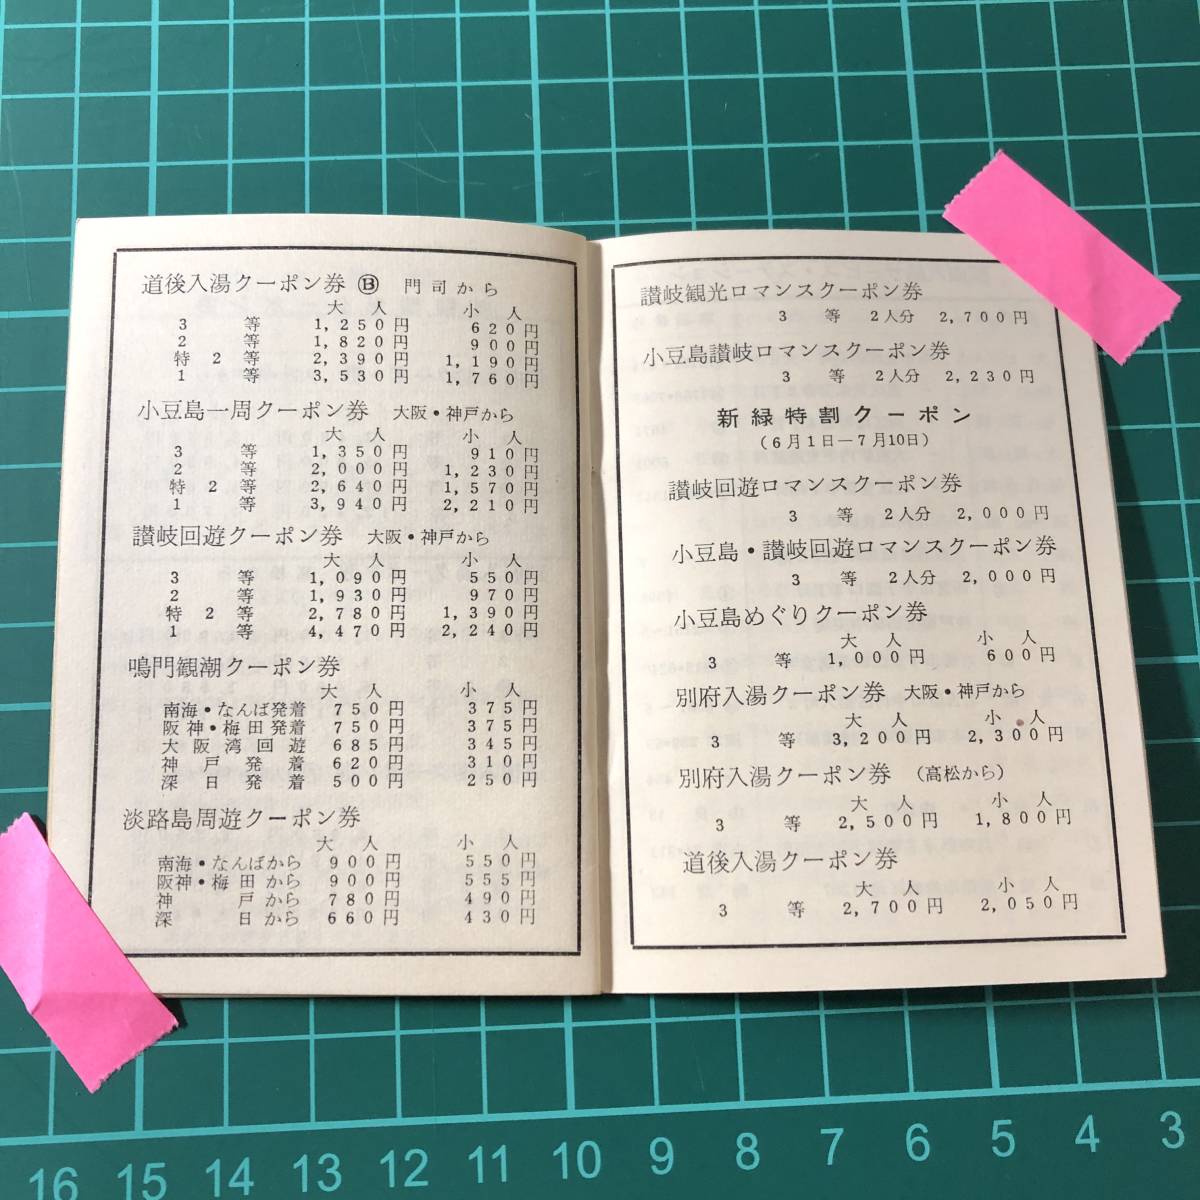 道後入湯クーポン券 Ⓑ 門司から
大人 小人
3等 1,250円 620円
2等 1,820円 900円
特2等 2,390円 1,190円
1等 3,530円 1,760円
小豆島一周クーポン券 大阪・神戸から
大人 小人
3等 1,350円 910円
2等 2,000円 1,230円
特2等 2,640円 1,570円
1等 3,940円 2,210円
讃岐回遊クーポン券 大阪・神戸から
大人 小人
3等 1,090円 550円
2等 1,930円 970円
特2等 2,780円 1,390円
1等 4,470円 2,240円
鳴門観潮クーポン券
大人 小人
南海・なんば発着 750円 375円
阪神・梅田発着 750円 375円
大阪湾回遊 685円 345円
神戸発着 620円 310円
深日発着 500円 250円
淡路島周遊クーポン券
大人 小人
南海・なんばから 900円 550円
阪神・梅田から 900円 555円
神戸から 780円 490円
深日から 660円 430円
讃岐観光ロマンスクーポン券
3等 2人分 2,700円
小豆島讃岐ロマンスクーポン券
3等 2人分 2,230円
新緑特割クーポン
（6月1日―7月10日）
讃岐回遊ロマンスクーポン券
3等 2人分 2,000円
小豆島・讃岐回遊ロマンスクーポン券
3等 2人分 2,000円
小豆島めぐりクーポン券
大人 小人
3等 1,000円 600円
別府入湯クーポン券 大阪・神戸から
大人 小人
3等 3,200円 2,300円
別府入湯クーポン券 （高松から）
大人 小人
3等 2,500円 1,800円
道後入湯クーポン券
大人 小人
3等 2,700円 2,050円
16 15 14 13 12 11 10 9 8 7 6 5 4 3